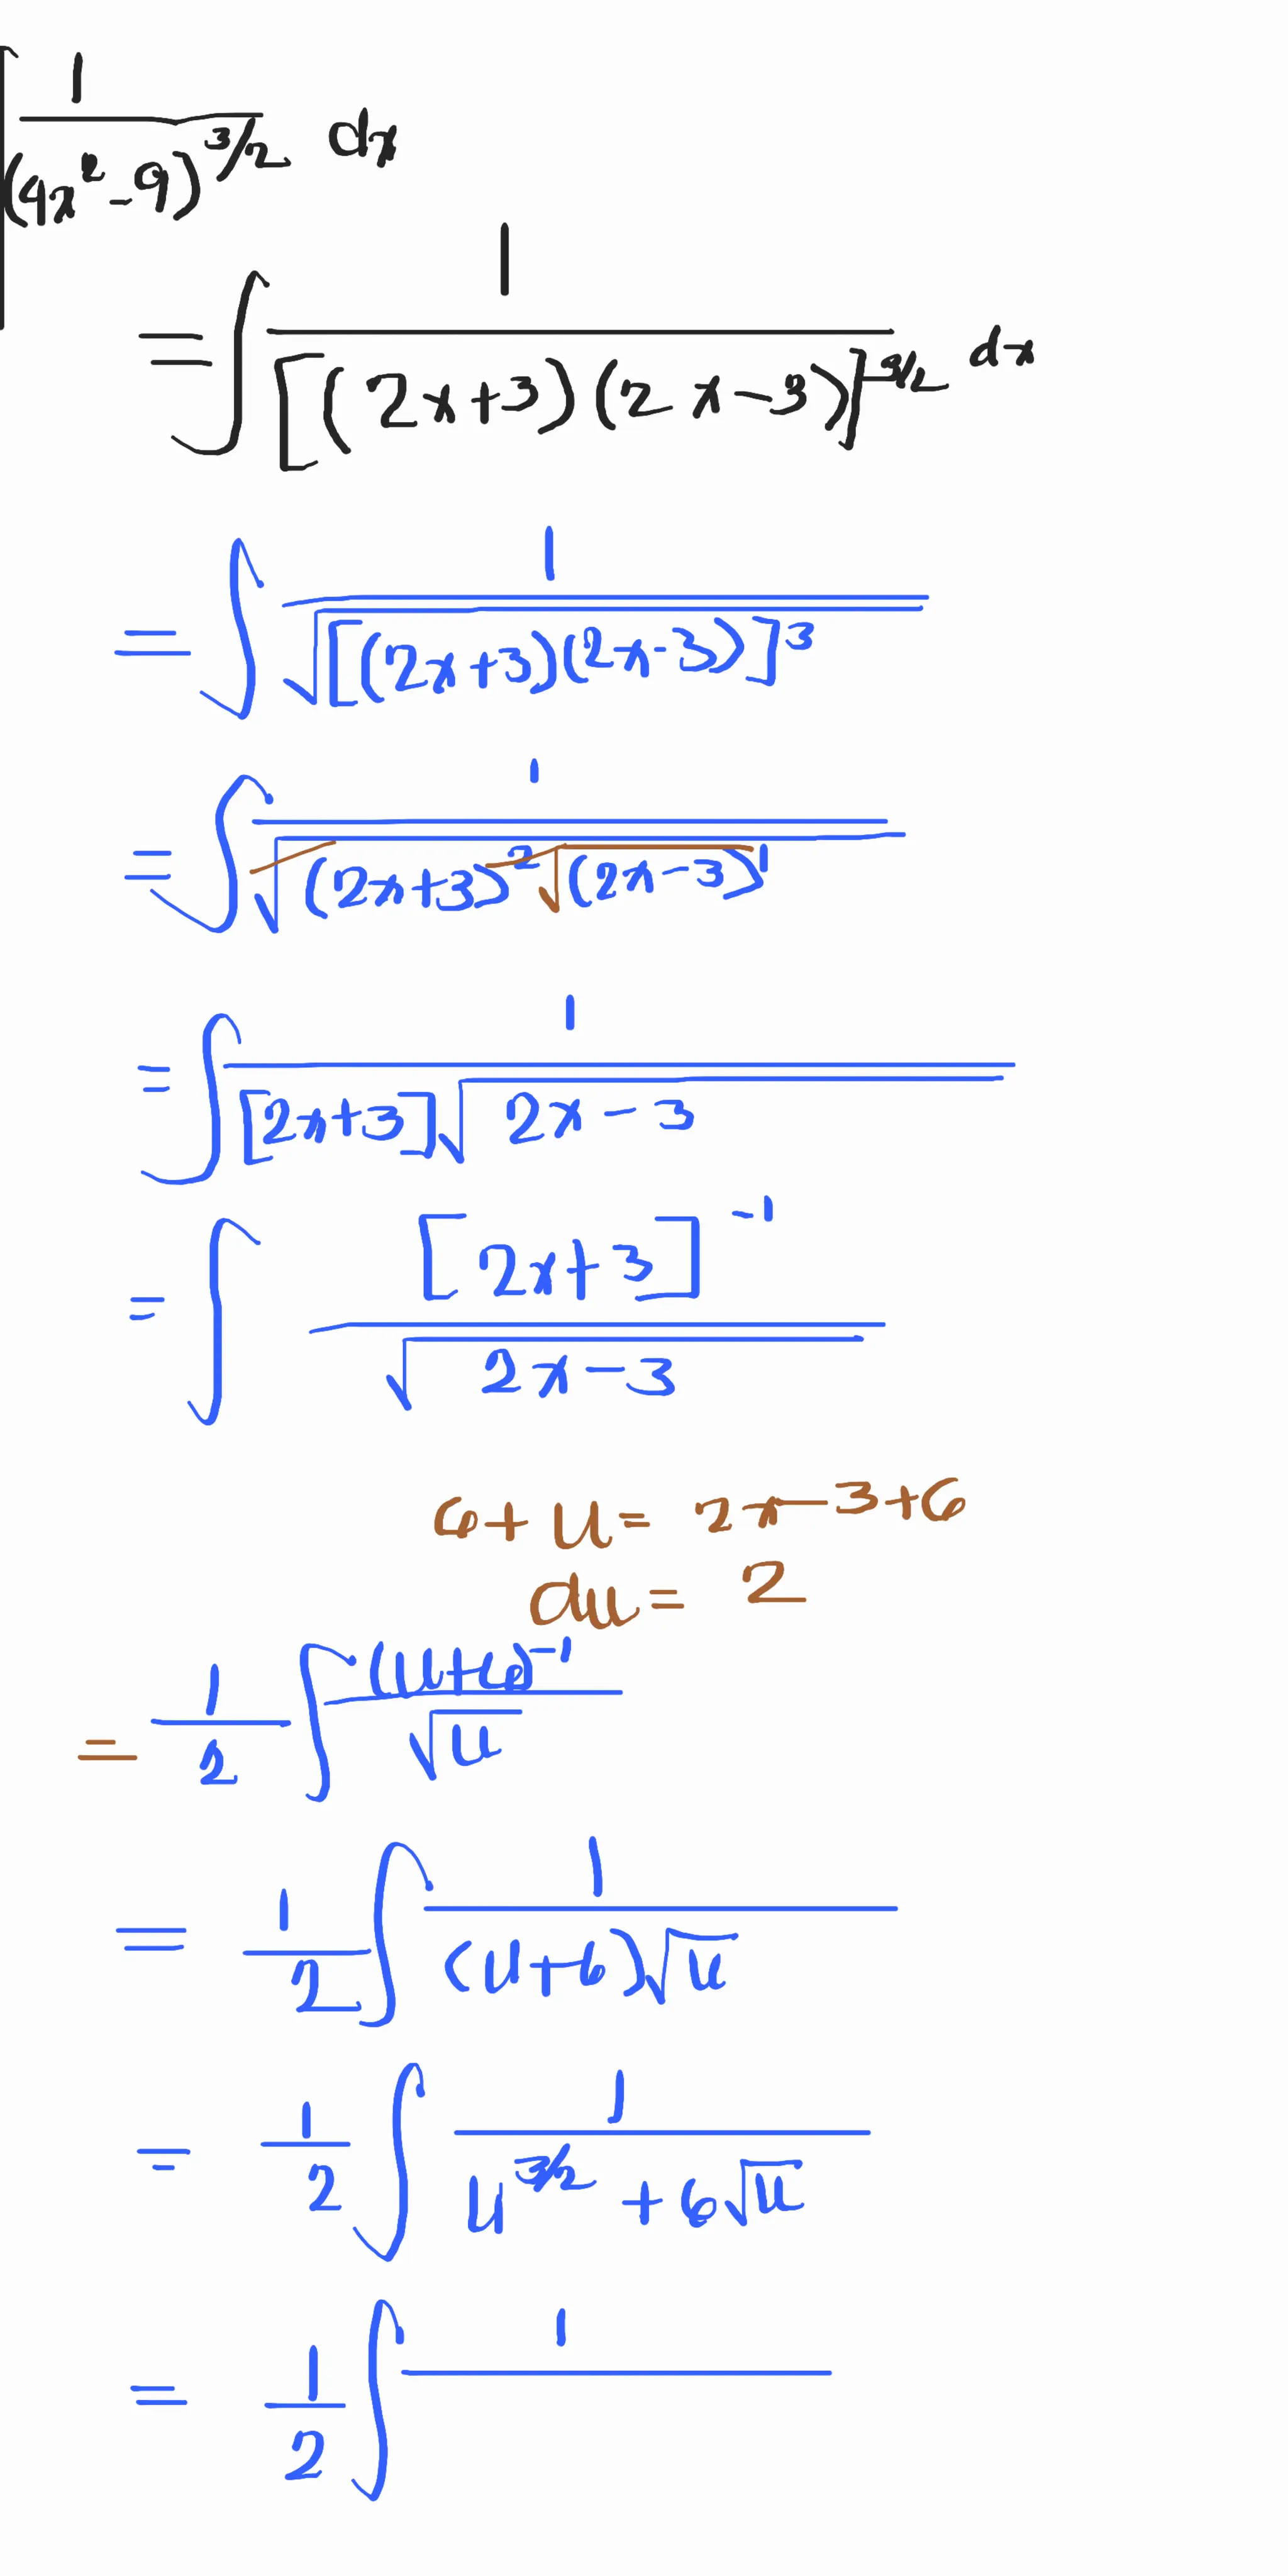 ∫ 1/(4x² - 9)^(3/2) dx
= ∫ 1/[(2x+3)(2x-3)]^(3/2) dx
= ∫ 1/√([(2x+3)(2x-3)]³)
= ∫ 1/(√((2x+3)²) √((2x-3)¹))
= ∫ 1/([2x+3]√(2x-3))
= ∫ [2x+3]⁻¹/√(2x-3)
6+u = 2x-3+6
du = 2
= 1/2 ∫ (u+6)⁻¹/√u
= 1/2 ∫ 1/((u+6)√u)
= 1/2 ∫ 1/(u^(3/2) + 6√u)
= 1/2 ∫ 1/